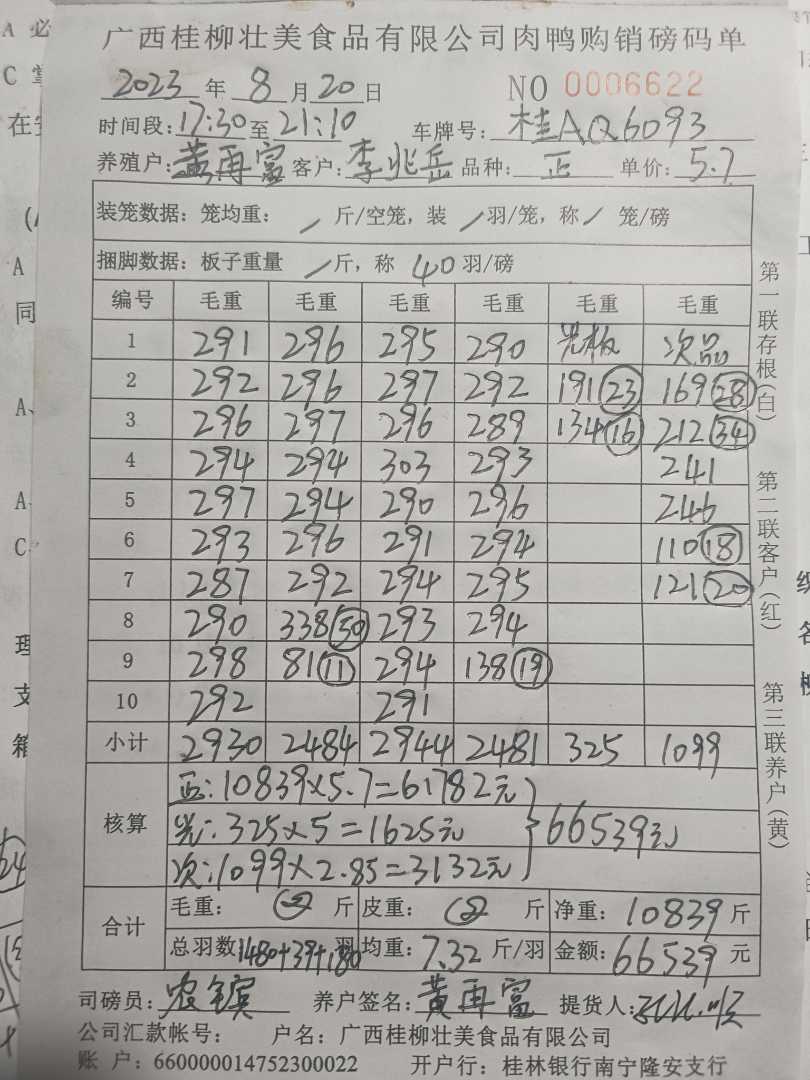 广西桂柳壮美食品有限公司肉鸭购销磅码单
2023年8月20日 NO 0006622
时间段:17:30至21:10 车牌号:桂AQ6093
养殖户:黄再富 客户:李兆岳 品种:正 单价:5.7
装笼数据:笼均重: / 斤/空笼,装 / 羽/笼,称 / 笼/磅
捆脚数据:板子重量 / 斤,称 40 羽/磅
编号 毛重 毛重 毛重 毛重 毛重 毛重
1 291 296 295 290 光板 次品
2 292 296 297 292 191 23 169 28
3 296 297 296 289 134 16 212 34
4 294 294 303 293 241
5 297 294 290 296 246
6 293 296 291 294 110 18
7 287 292 294 295 121 20
8 290 338 50 293 294
9 298 81 11 294 138 19
10 292 291
小计 2930 2484 2944 2481 325 1099
核算
正:10839×5.7=61782元
光:325×5=1625元
次:1099×2.85=3132元
66539元
合计
毛重: 斤 皮重: 斤 净重:10839斤
总羽数1480+39+180羽 均重:7.32斤/羽 金额:66539元
司磅员: 养户签名:黄再富 提货人:
公司汇款帐号: 户名:广西桂柳壮美食品有限公司
账 户:660000014752300022 开户行:桂林银行南宁隆安支行
第一联存根(白)
第二联客户(红)
第三联养户(黄)